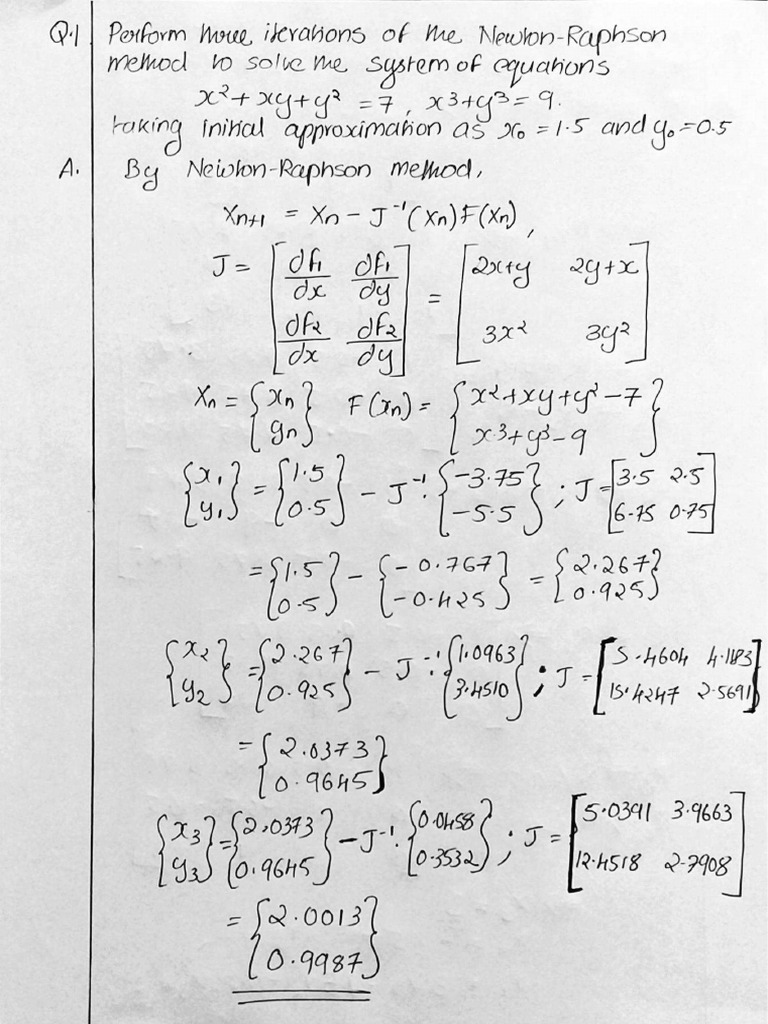 Q.1 Perform three iterations of the Newton-Raphson
method to solve the system of equations
x² + xy + y² = 7, x³ + y³ = 9.
taking initial approximation as x₀ = 1.5 and y₀ = 0.5
A. By Newton-Raphson method,
Xn+1 = Xn - J⁻¹(Xn) F(Xn),
J = [df₁/dx df₁/dy; df₂/dx df₂/dy] = [2x+y 2y+x; 3x² 3y²]
Xn = {xn; yn} F(xn) = {x²+xy+y²-7; x³+y³-9}
{x₁; y₁} = {1.5; 0.5} - J⁻¹.{-3.75; -5.5} ; J = [3.5 2.5; 6.75 0.75]
= {1.5; 0.5} - {-0.767; -0.425} = {2.267; 0.925}
{x₂; y₂} = {2.267; 0.925} - J⁻¹.{1.0963; 3.4510} ; J = [5.4604 4.1183; 15.4247 2.5691]
= {2.0373; 0.9645}
{x₃; y₃} = {2.0373; 0.9645} - J⁻¹.{0.0458; 0.3532} ; J = [5.0391 3.9663; 12.4518 2.7908]
= {2.0013; 0.9987}